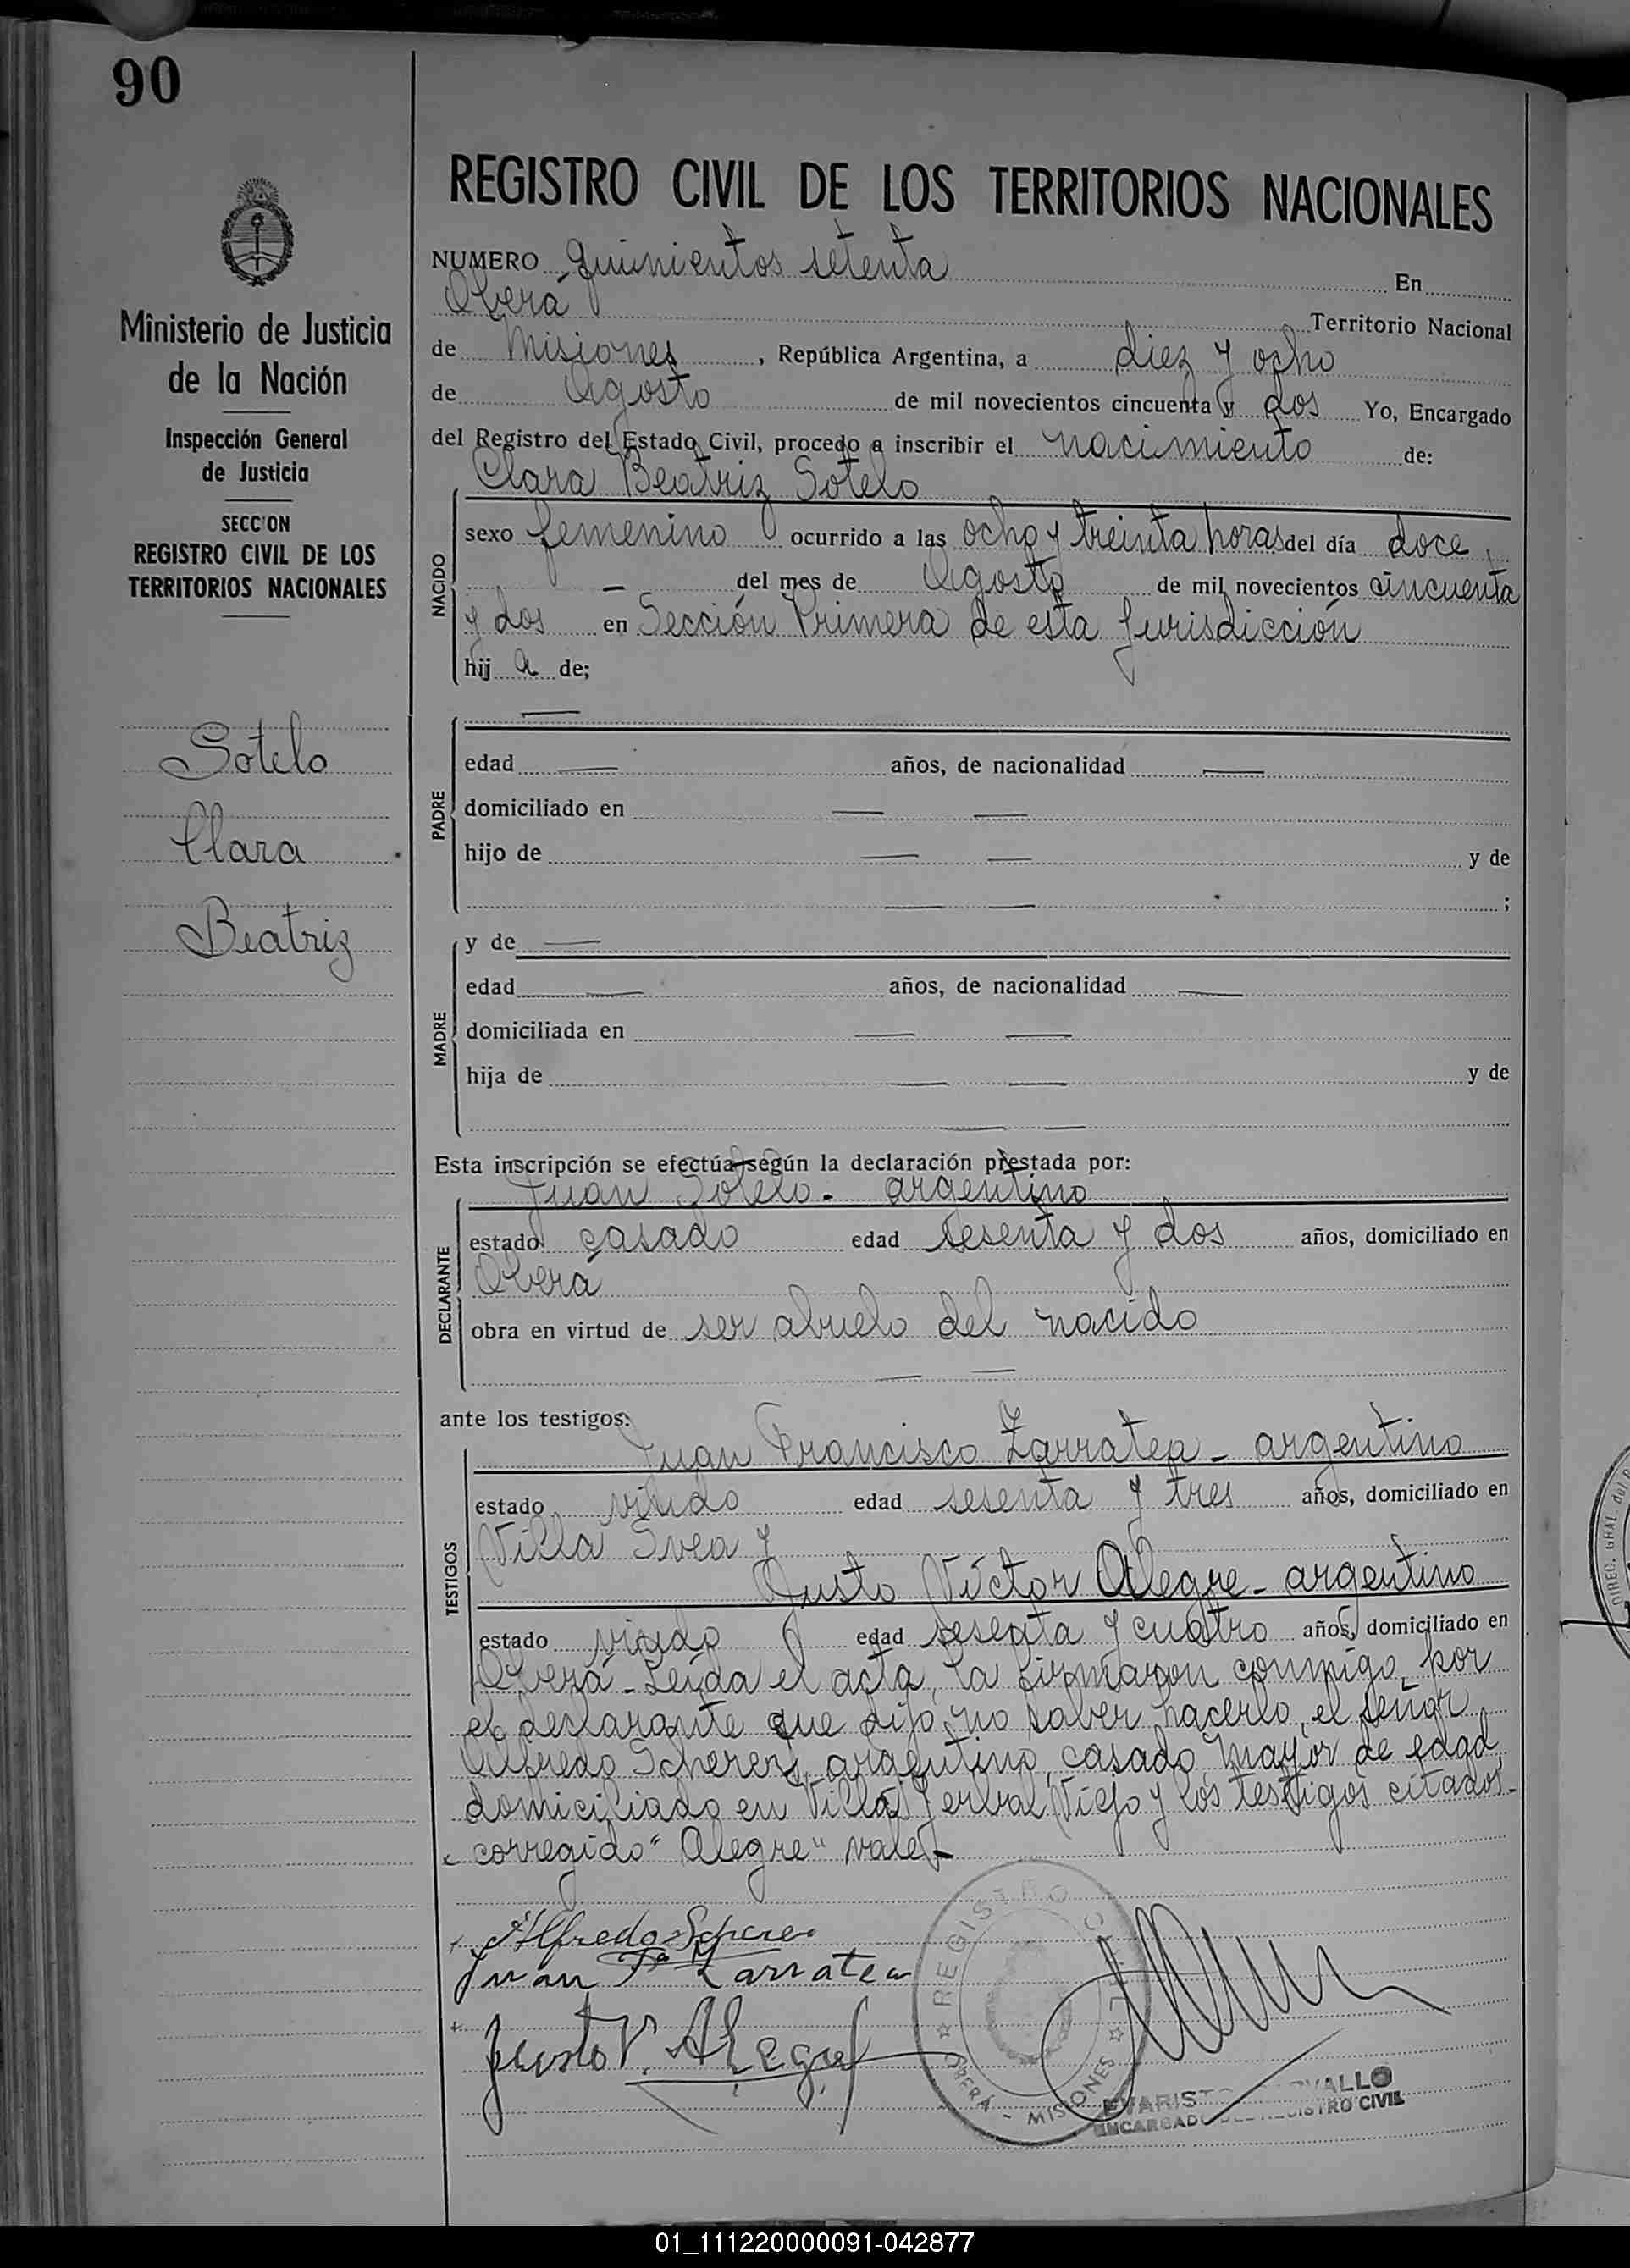 90
Ministerio de Justicia
de la Nación
Inspección General
de Justicia
SECCION
REGISTRO CIVIL DE LOS
TERRITORIOS NACIONALES
Sotelo
Clara
Beatriz
REGISTRO CIVIL DE LOS TERRITORIOS NACIONALES
NUMERO quinientos setenta En
Oberá Territorio Nacional
de Misiones, República Argentina, a diez y ocho
de Agosto de mil novecientos cincuenta y dos Yo, Encargado
del Registro del Estado Civil, procedo a inscribir el nacimiento de:
Clara Beatriz Sotelo
NACIDO
sexo femenino ocurrido a las ocho y treinta horas del día doce,
— del mes de Agosto de mil novecientos cincuenta
y dos en Sección Primera de esta Jurisdicción
hij a de;
PADRE
—
edad — años, de nacionalidad —
domiciliado en — —
hijo de — — y de
— — ;
MADRE
y de —
edad — años, de nacionalidad —
domiciliada en — —
hija de — — y de
— —
Esta inscripción se efectúa según la declaración prestada por:
DECLARANTE
Juan Sotelo - argentino
estado casado edad sesenta y dos años, domiciliado en
Oberá
obra en virtud de ser abuelo del nacido
— —
ante los testigos:
TESTIGOS
Juan Francisco Zarratea - argentino
estado viudo edad sesenta y tres años, domiciliado en
Villa Svea y
Justo Víctor Alegre - argentino
estado viudo edad sesenta y cuatro años, domiciliado en
Oberá - Leída el acta, la firmaron conmigo, por
el declarante que dijo no saber hacerlo, el señor
Alfredo Scherer, argentino, casado, mayor de edad,
domiciliado en Villa Yerbal Viejo y los testigos citados.-
corregido "Alegre" vale-
Alfredo Scherer
Juan Fco Zarratea
Justo V. Alegre
REGISTRO CIVIL
OBERÁ - MISIONES
ENCARGADO DEL REGISTRO CIVIL
01_111220000091-042877